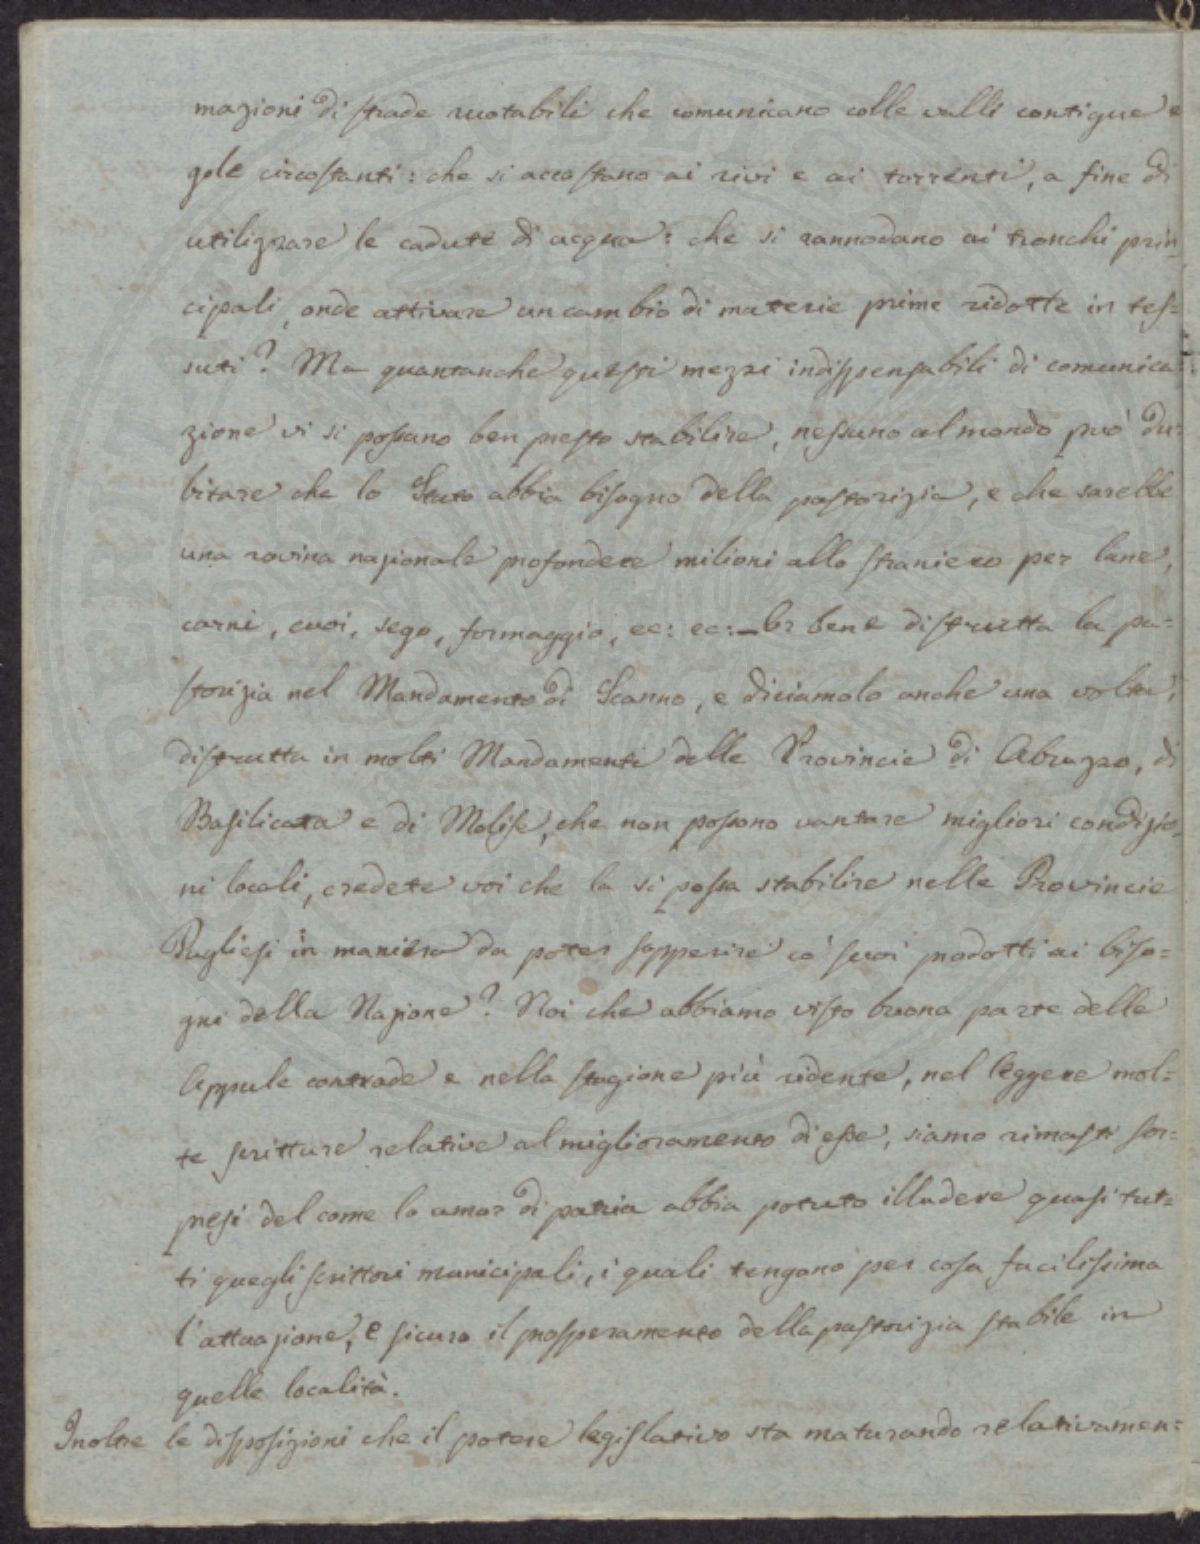 mazioni di strade ruotabili che comunicano colle valli contigue e
gole circostanti: che si accostano ai rivi e ai torrenti, a fine di
utilizzare le cadute di acqua: che si rannodano ai tronchi prin=
cipali, onde attivare un cambio di materie prime ridotte in tes=
suti? Ma quantanche questi mezzi indispensabili di comunica=
zione vi si possano ben presto stabilire, nessuno al mondo può du=
bitare che lo Stato abbia bisogno della pastorizia, e che sarebbe
una rovina nazionale profondere milioni allo straniero per lane,
carni, cuoi, sego, formaggio, ec: ec:— Or bene distrutta la pa=
storizia nel Mandamento di Scanno, e diciamolo anche una volta,
distrutta in molti Mandamenti delle Provincie di Abruzzo, di
Basilicata e di Molise, che non possono vantare migliori condizio=
ni locali, credete voi che la si possa stabilire nelle Provincie
Pugliesi in maniera da poter sopperire co' suoi prodotti ai biso=
gni della Nazione? Noi che abbiamo visto buona parte delle
Appule contrade e nella stagione più ridente, nel leggere mol=
te scritture relative al miglioramento di esse, siamo rimasti sor=
presi del come lo amor di patria abbia potuto illudere quasi tut=
ti quegli scrittori municipali, i quali tengono per cosa facilissima
l'attuazione, e sicuro il prosperamento della pastorizia stabile in
quelle località.
Inoltre le disposizioni che il potere legislativo sta maturando relativamen=